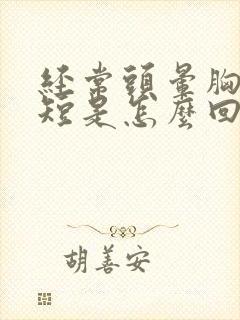 經常頭暈胸
短是怎麼回
胡善安